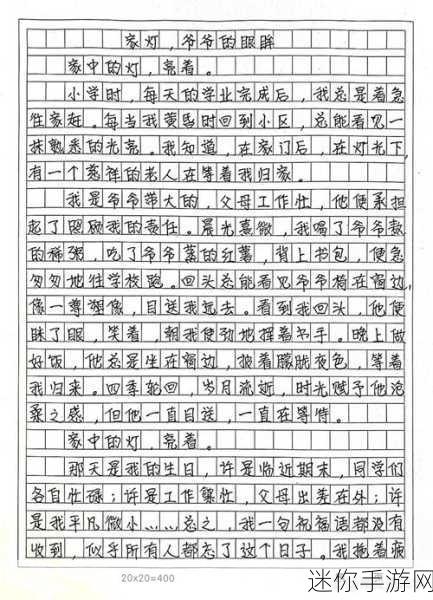 家灯，爷爷的眼眸
家中的灯，亮着。
小学时，每天的学业完成后，我总是着急
往家赶。每当我黄昏时回到小区，总能看见一
抹熟悉的光亮。我知道，在家门后，在灯光下，
有一个慈祥的老人在等着我归家。
我是爷爷带大的，父母工作忙，他便承担
起了照顾我的责任。晨光熹微，我喝了爷爷熬
的稀粥，吃了爷爷蒸的红薯，背上书包，便急
匆匆地往学校跑。回头总能看见爷爷椅在窗边，
像一尊塑像，目送我远去。看到我回头，他便
眯了眼，笑着，朝我使劲地挥着右手。晚上做
好饭，他总是坐在窗边，披着朦胧夜色，等着
我归来。四季轮回，岁月流逝，时光赋予他沧
桑之感，但他一直目送，一直在等待。
家中的灯，亮着。
那天是我的生日，许是临近期末，同学们
各自忙碌；许是工作繁忙，父母出差在外；许
是我平凡微小……总之，我一句祝福语都没有
收到，似乎所有人都忘了这个日子。我拖着疲
20×20=400
迷你手游网